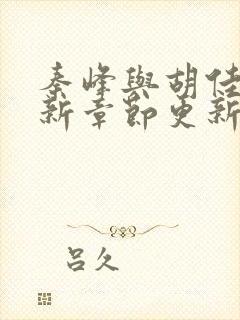 秦峰與胡佳
新章節更新
呂久